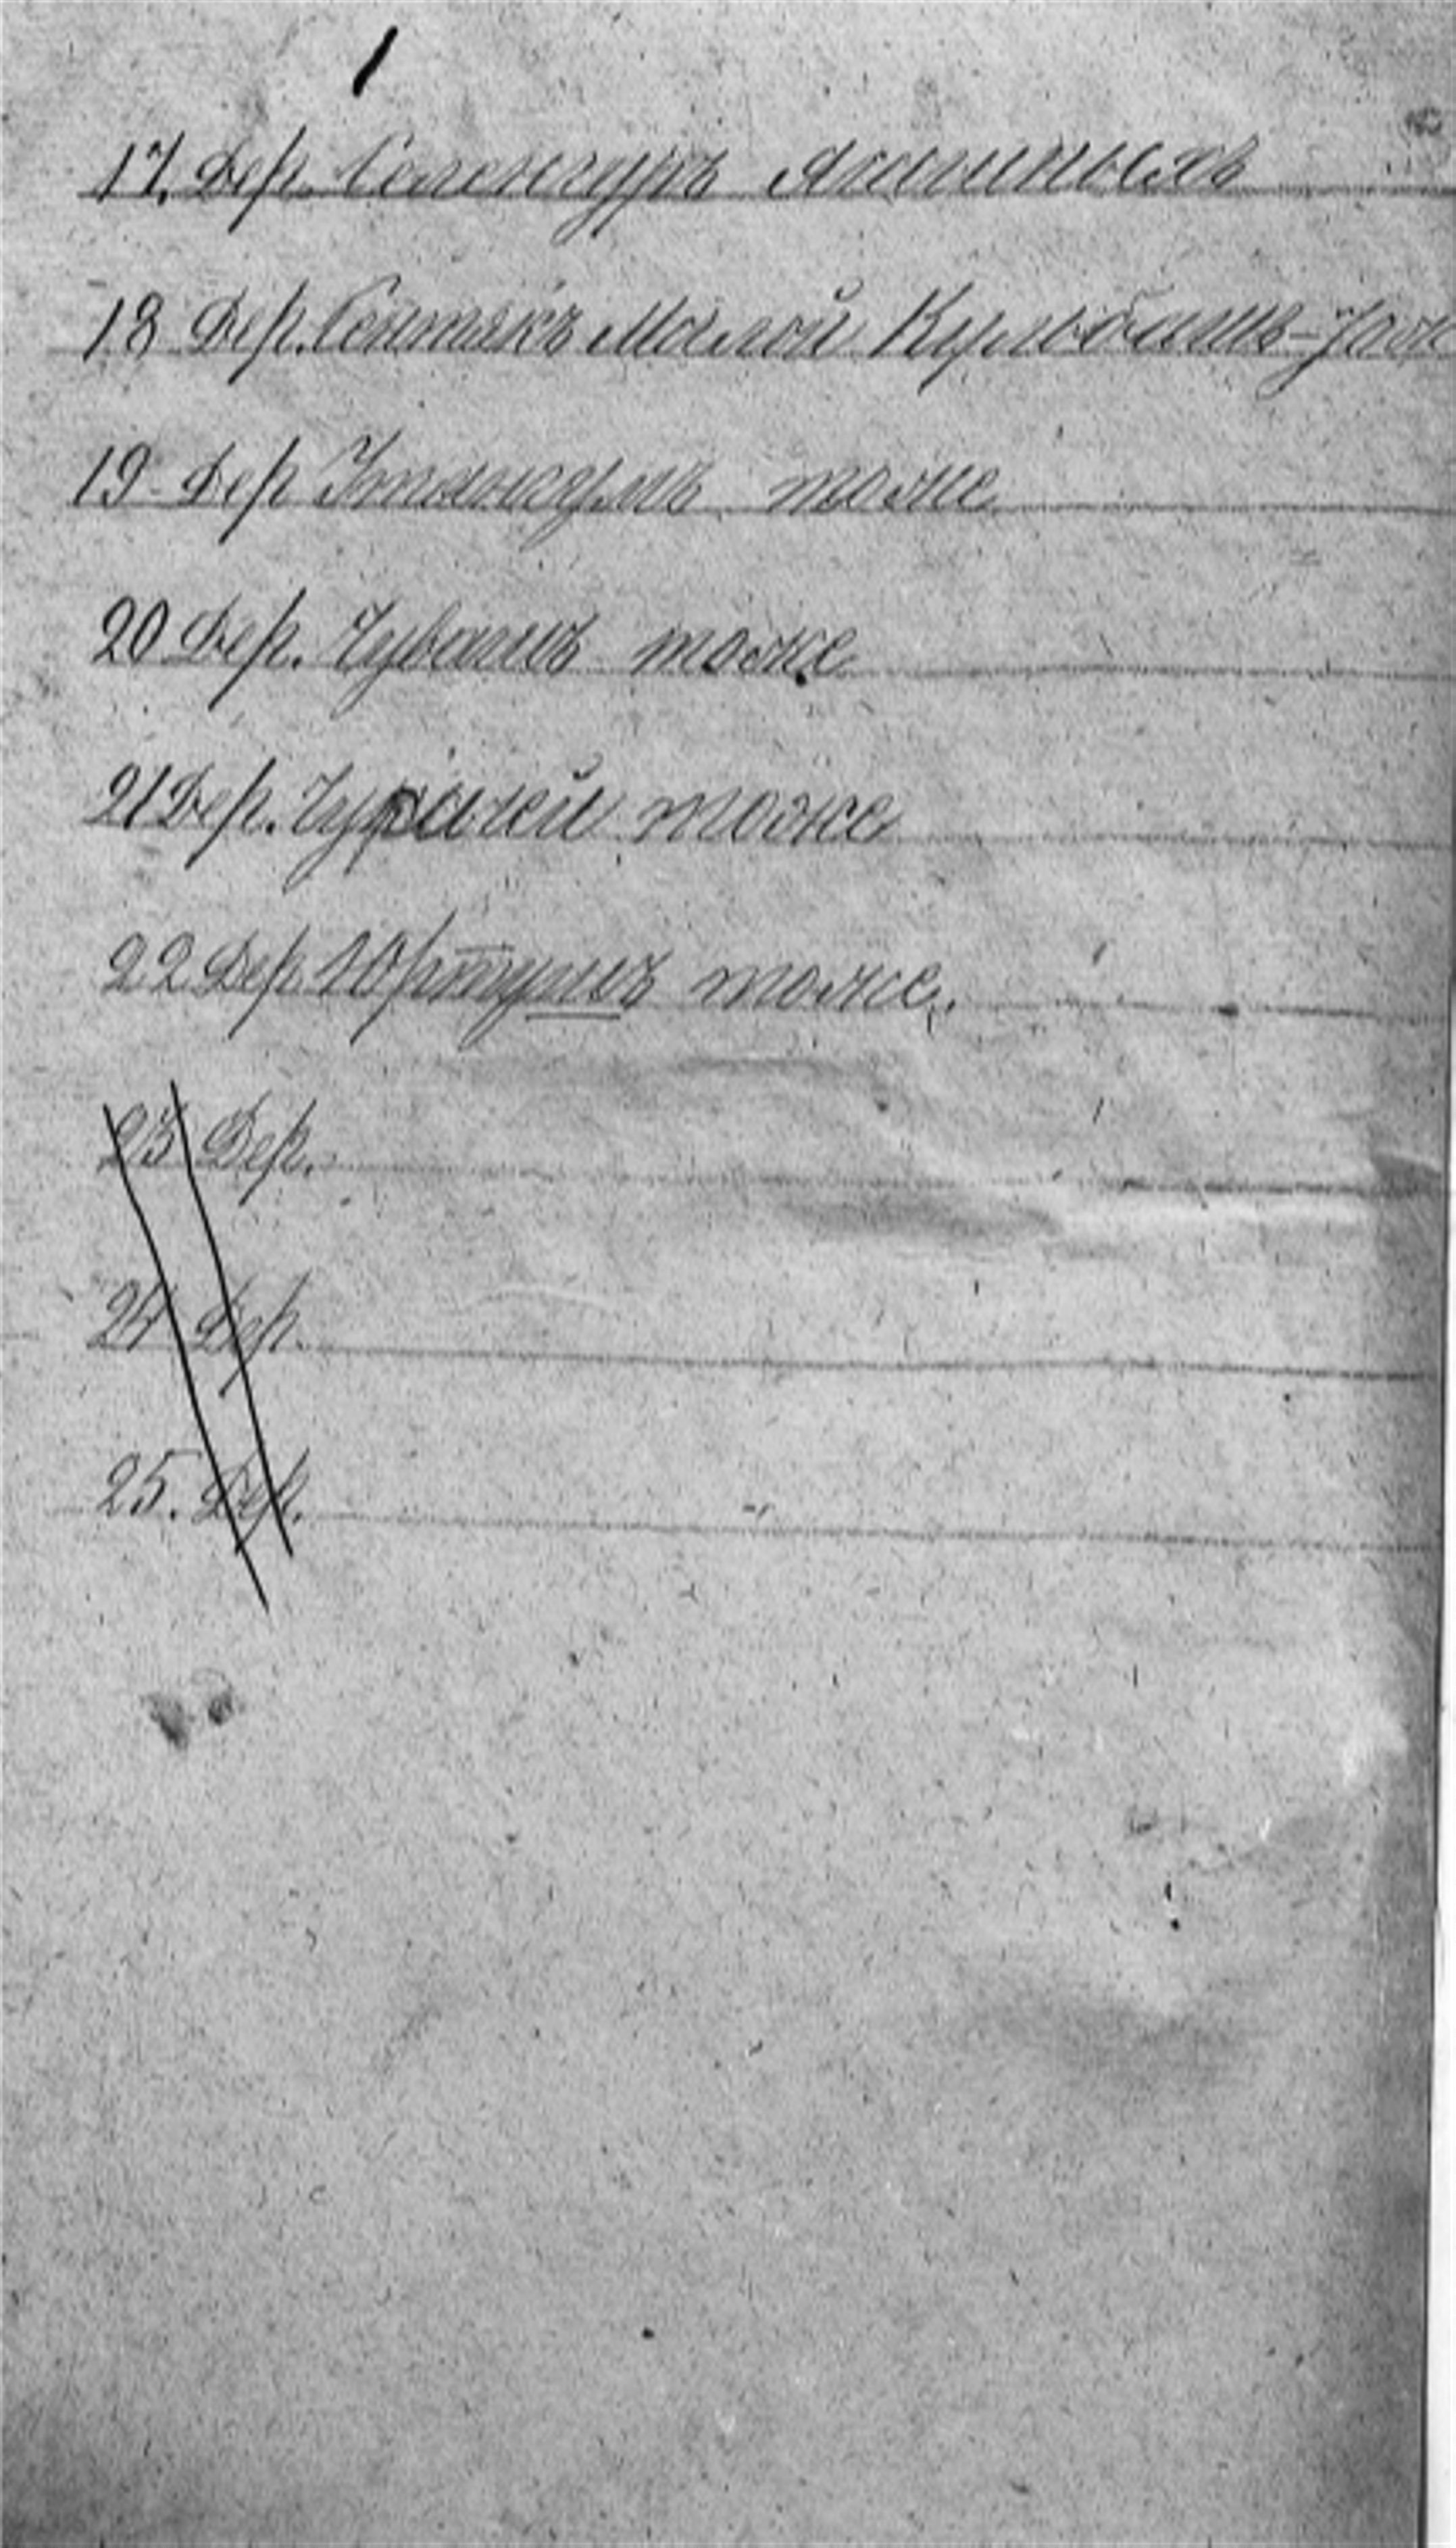 17. Дер. Селенгуръ
18 Дер. Сентякъ Малой Кульбашъ-
19 Дер тоже
20 Дер. Чувашъ тоже
21 Дер. Чуралей тоже
22 Дер. Юртушъ тоже.
23 Дер.
24 Дер.
25. Дер.